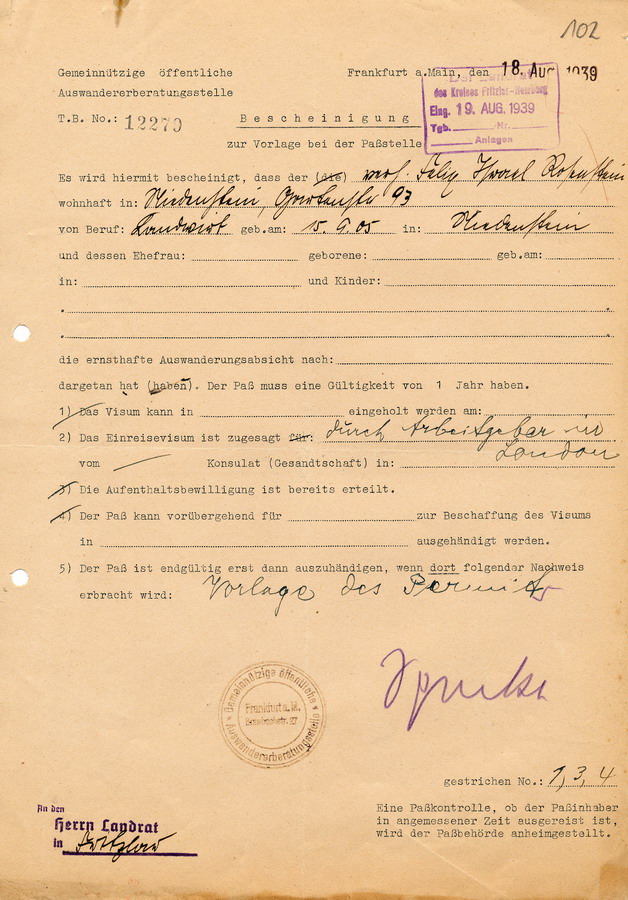 102
Gemeinnützige öffentliche
Auswandererberatungsstelle
Frankfurt a.Main, den 18. Aug 1939
Der Landrat
des Kreises Fritzlar-Homberg
Eing. 19. AUG. 1939
Tgb. Nr.
Anlagen
T.B. No.: 12279
Bescheinigung
zur Vorlage bei der Paßstelle
Es wird hiermit bescheinigt, dass der (die) verh. Felix Israel Rothstein
wohnhaft in: Niedenstein, 93
von Beruf: Landwirt geb.am: 15. 9. 05 in: Niedenstein
und dessen Ehefrau: geborene: geb.am:
in: und Kinder:
die ernsthafte Auswanderungsabsicht nach:
dargetan hat (haben). Der Paß muss eine Gültigkeit von 1 Jahr haben.
1) Das Visum kann in eingeholt werden am:
2) Das Einreisevisum ist zugesagt für: durch Arbeitgeber in
London
vom Konsulat (Gesandtschaft) in:
3) Die Aufenthaltsbewilligung ist bereits erteilt.
4) Der Paß kann vorübergehend für zur Beschaffung des Visums
in ausgehändigt werden.
5) Der Paß ist endgültig erst dann auszuhändigen, wenn dort folgender Nachweis
erbracht wird: Vorlage des Permits
Gemeinnützige öffentliche
Auswandererberatungsstelle
Frankfurt a. M.
gestrichen No.: 1, 3, 4
An den
Herrn Landrat
in Fritzlar
Eine Paßkontrolle, ob der Paßinhaber
in angemessener Zeit ausgereist ist,
wird der Paßbehörde anheimgestellt.